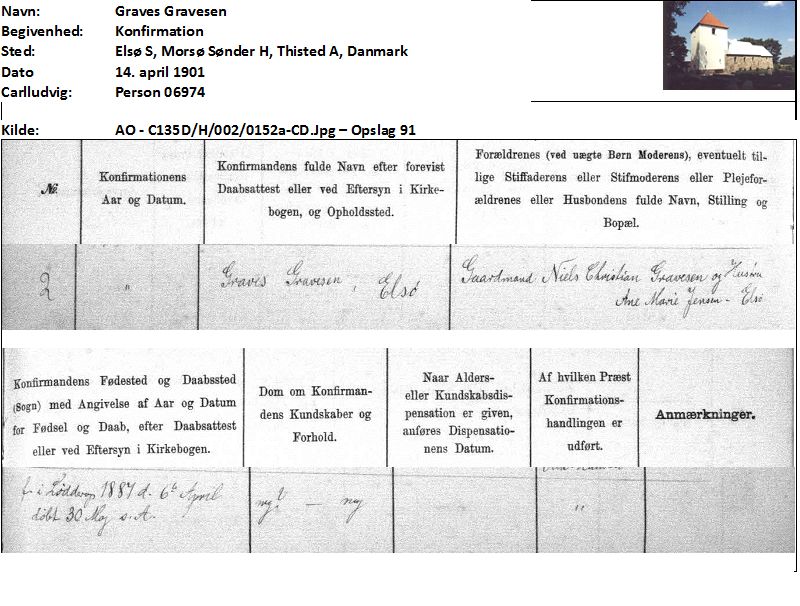 Navn: Graves Gravesen
Begivenhed: Konfirmation
Sted: Elsø S, Morsø Sønder H, Thisted A, Danmark
Dato 14. april 1901
Carlludvig: Person 06974
Kilde: AO - C135D/H/002/0152a-CD.Jpg – Opslag 91
№.
Konfirmationens
Aar og Datum.
Konfirmandens fulde Navn efter forevist
Daabsattest eller ved Eftersyn i Kirke-
bogen, og Opholdssted.
Forældrenes (ved uægte Børn Moderens), eventuelt til-
lige Stiffaderens eller Stifmoderens eller Plejefor-
ældrenes eller Husbondens fulde Navn, Stilling og
Bopæl.
2
"
Graves Gravesen, Elsø
Gaardmand Niels Christian Gravesen og Hustru
Ane Marie Jensen - Elsø
Konfirmandens Fødested og Daabssted
(Sogn) med Angivelse af Aar og Datum
for Fødsel og Daab, efter Daabsattest
eller ved Eftersyn i Kirkebogen.
Dom om Konfirman-
dens Kundskaber og
Forhold.
Naar Alders-
eller Kundskabsdis-
pensation er given,
anføres Dispensatio-
nens Datum.
Af hvilken Præst
Konfirmations-
handlingen er
udført.
Anmærkninger.
f. i Lødderup 1887 d. 6te April
døbt 30 Maj s. A.
mgt — mg
"